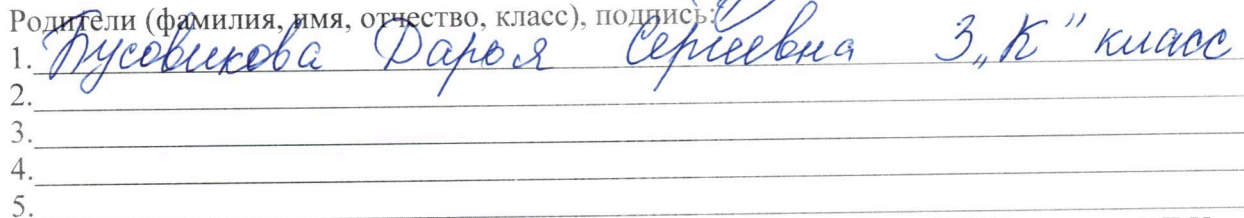 Родители (фамилия, имя, отчество, класс), подпись:
1. Бусовикова Дарья Сергеевна 3 „К" класс
2.
3.
4.
5.